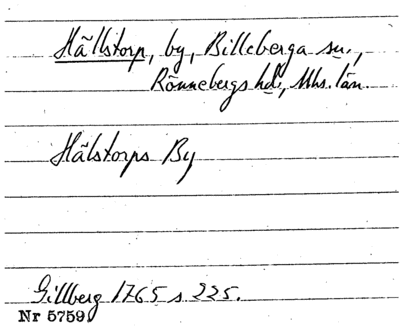 Hällstorp, by, Billeberga sn.,
Rönnebergs hd., Mhs. län.
Hälstorps By
Gillberg 1765 s 225.
Nr 5759